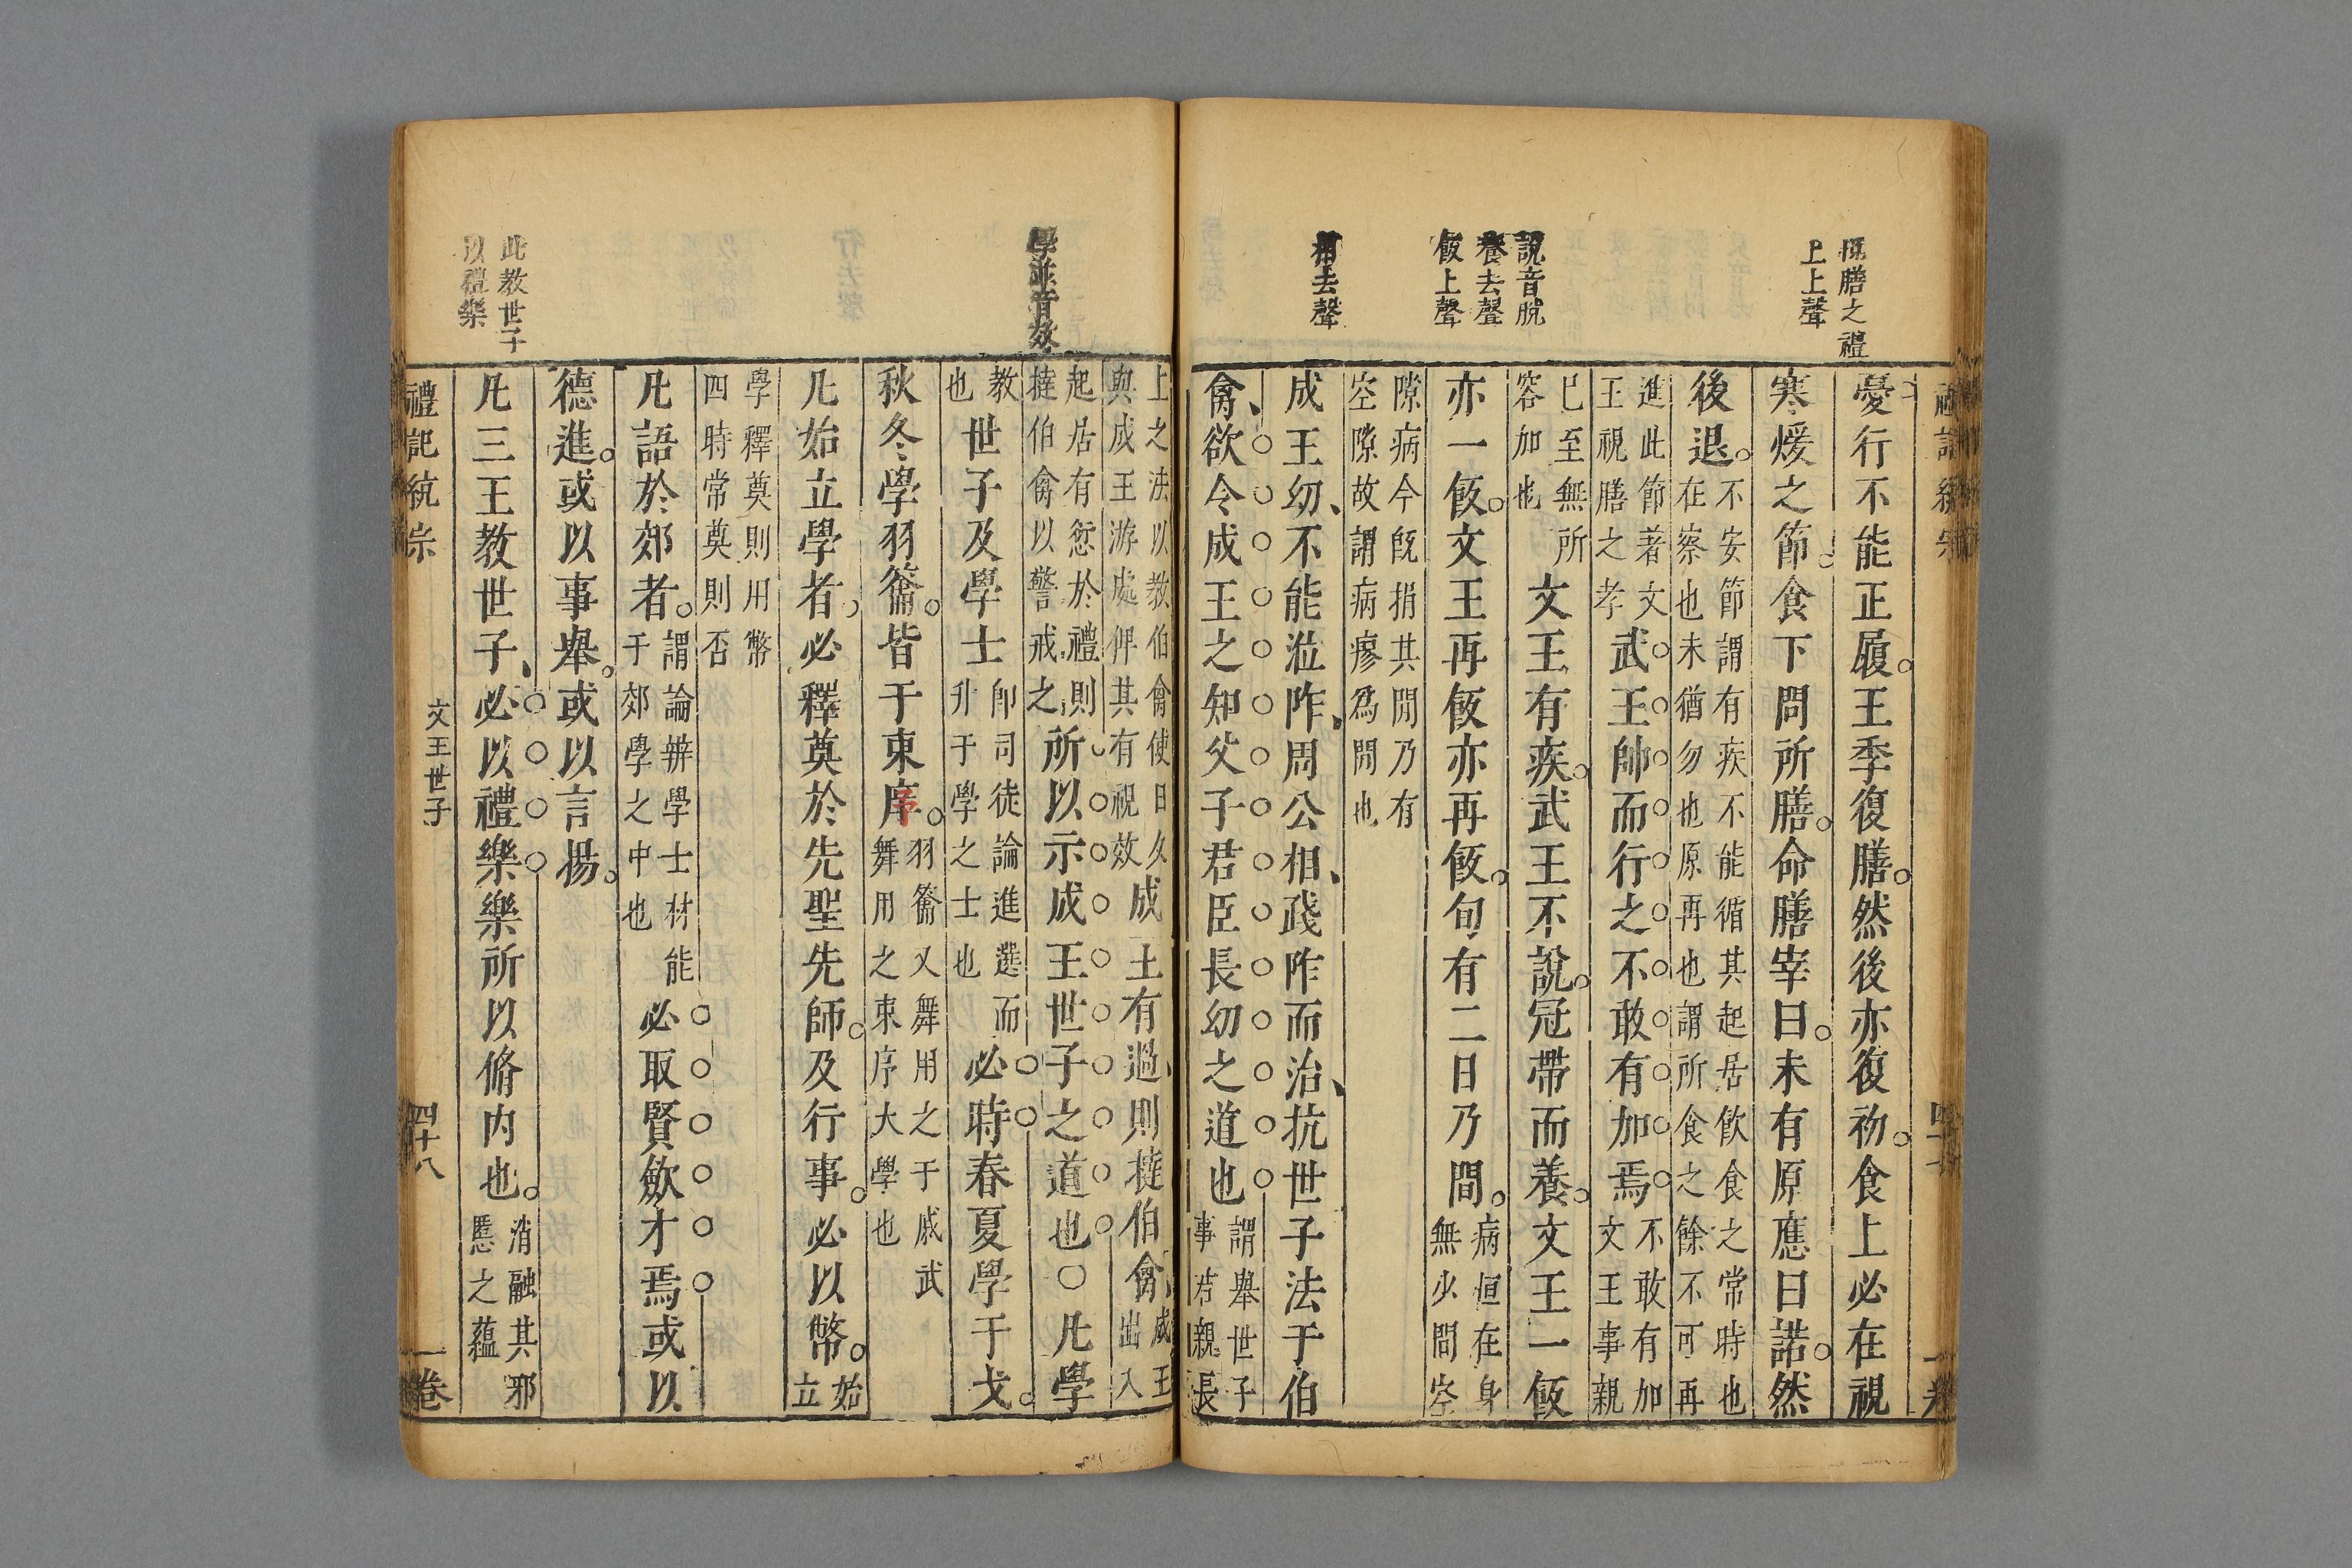 視膳之禮
上上聲
說音脫
養去聲
飯上聲
相去聲
憂行不能正履王季復膳然後亦復初食上必在視
寒煖之節食下問所膳命膳宰曰未有原應曰諾然
後退不安節謂有疾不能循其起居飲食之常時也
在察也未猶勿也原再也謂所食之餘不可再
進此節著文
王視膳之孝武王帥而行之不敢有加焉不敢有加
文王事親
已至無所
容加也文王有疾武王不說冠帶而養文王一飯
亦一飯文王再飯亦再飯旬有二日乃間病恒在身
無少間空
隙病今旣捐其間乃有
空隙故謂病瘳為間也
成王幼不能涖阼周公相踐阼而治抗世子法于伯
禽欲令成王之知父子君臣長幼之道也謂舉世子
事君親長
學並音效
行去聲
此教世子
以禮樂
上之法以教伯禽使日久
與成王游處俾其有視效成王有過則撻伯禽成王
出入
起居有愆於禮則
撻伯禽以警戒之所以示成王世子之道也○凡學
教
也世子及學士卽司徒論進選而
升于學之士也必時春夏學干戈
秋冬學羽籥皆于東序羽籥文舞用之干戚武
舞用之東序大學也
凡始立學者必釋奠於先聖先師及行事必以幣始
立
學釋奠則用幣
四時常奠則否
凡語於郊者謂論辨學士材能
于郊學之中也必取賢斂才焉或以
德進或以事舉或以言揚
凡三王教世子必以禮樂樂所以脩內也消融其邪
慝之蘊
禮記統宗
文王世子
四十八
一卷